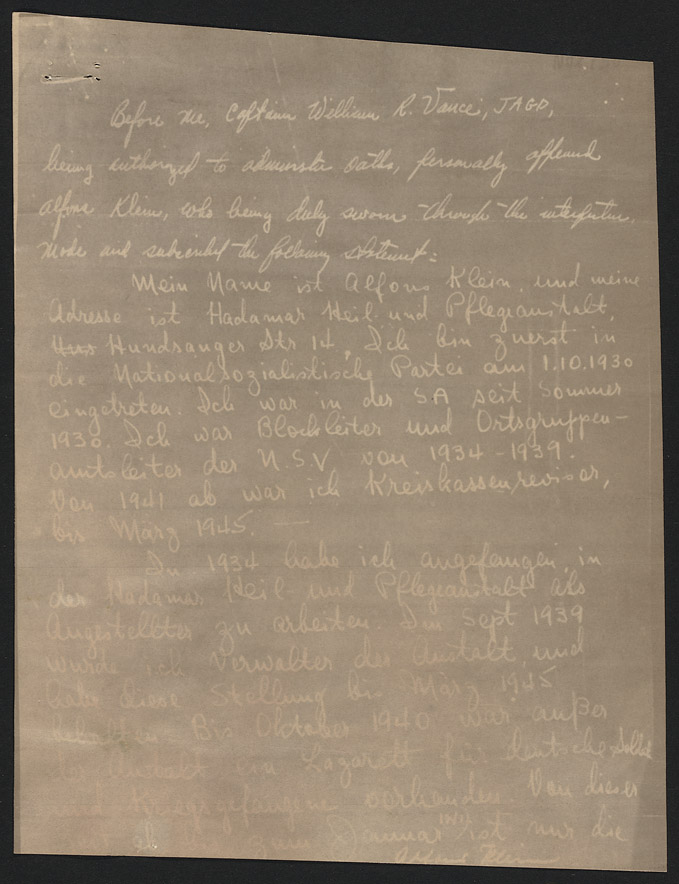 Before me, Captain William R. Vance, JAGD,
being authorized to administer oaths, personally appeared
Alfons Klein, who being duly sworn through the interpreter,
made and subscribed the following statement:
Mein Name ist Alfons Klein, und meine
Adresse ist Hadamar Heil und Pflegeanstalt,
Hundsanger Str 14. Ich bin zuerst in
die Nationalsozialistische Partei am 1.10.1930
eingetreten. Ich war in der SA seit Sommer
1930. Ich war Blockleiter und Ortsgruppen-
amtsleiter der N.S.V von 1934-1939.
Von 1941 ab war ich Kreiskassenrevisor,
bis März 1945.
In 1934 habe ich angefangen, in
der Hadamar Heil- und Pflegeanstalt als
Angestellter zu arbeiten. Im Sept 1939
wurde ich Verwalter der Anstalt, und
habe diese Stellung bis März 1945
behalten. Bis Oktober 1940 war außer
der Anstalt ein Lazarett für deutsche
und Kriegsgefangene vorhanden. Von dieser
zum Januar 1941 ist nur die
Alfons Klein